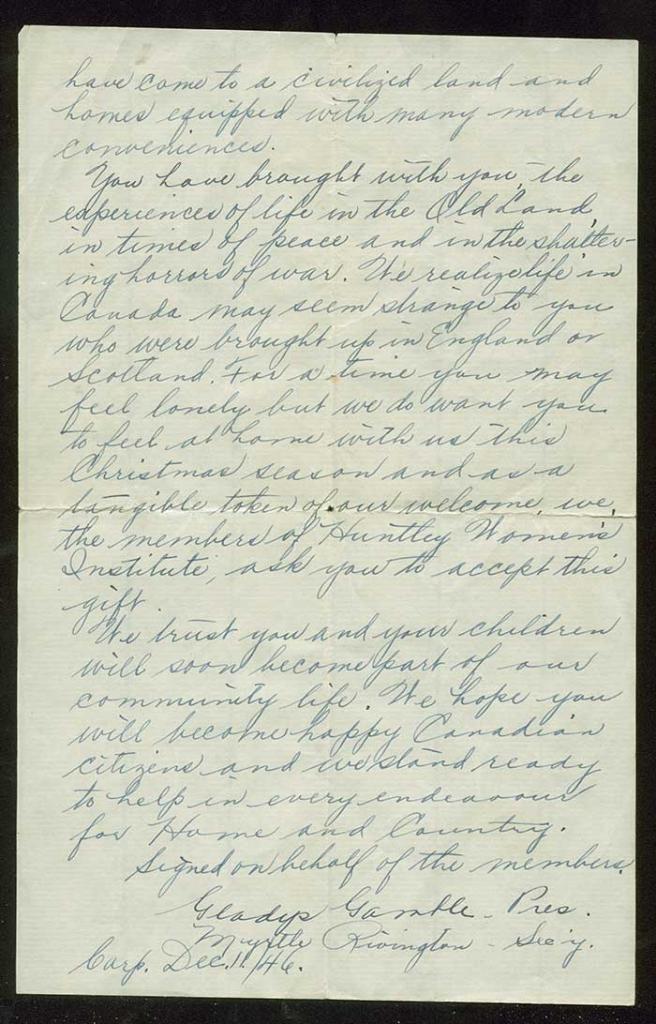 have come to a civilized land and
homes equipped with many modern
conveniences.
You have brought with you, the
experiences of life in the Old Land,
in times of peace and in the shatter-
ing horrors of war. We realize life in
Canada may seem strange to you
who were brought up in England or
Scotland. For a time you may
feel lonely but we do want you
to feel at home with us this
Christmas season and as a
tangible token of our welcome, we,
the members of Huntley Women's
Institute, ask you to accept this
gift.
We trust you and your children
will soon become part of our
community life. We hope you
will become happy Canadian
citizens and we stand ready
to help in every endeavour
for Home and Country.
Signed on behalf of the members.
Gladys Gamble - Pres.
Myrtle Rivington - Sec'y.
Carp. Dec. 11/46.